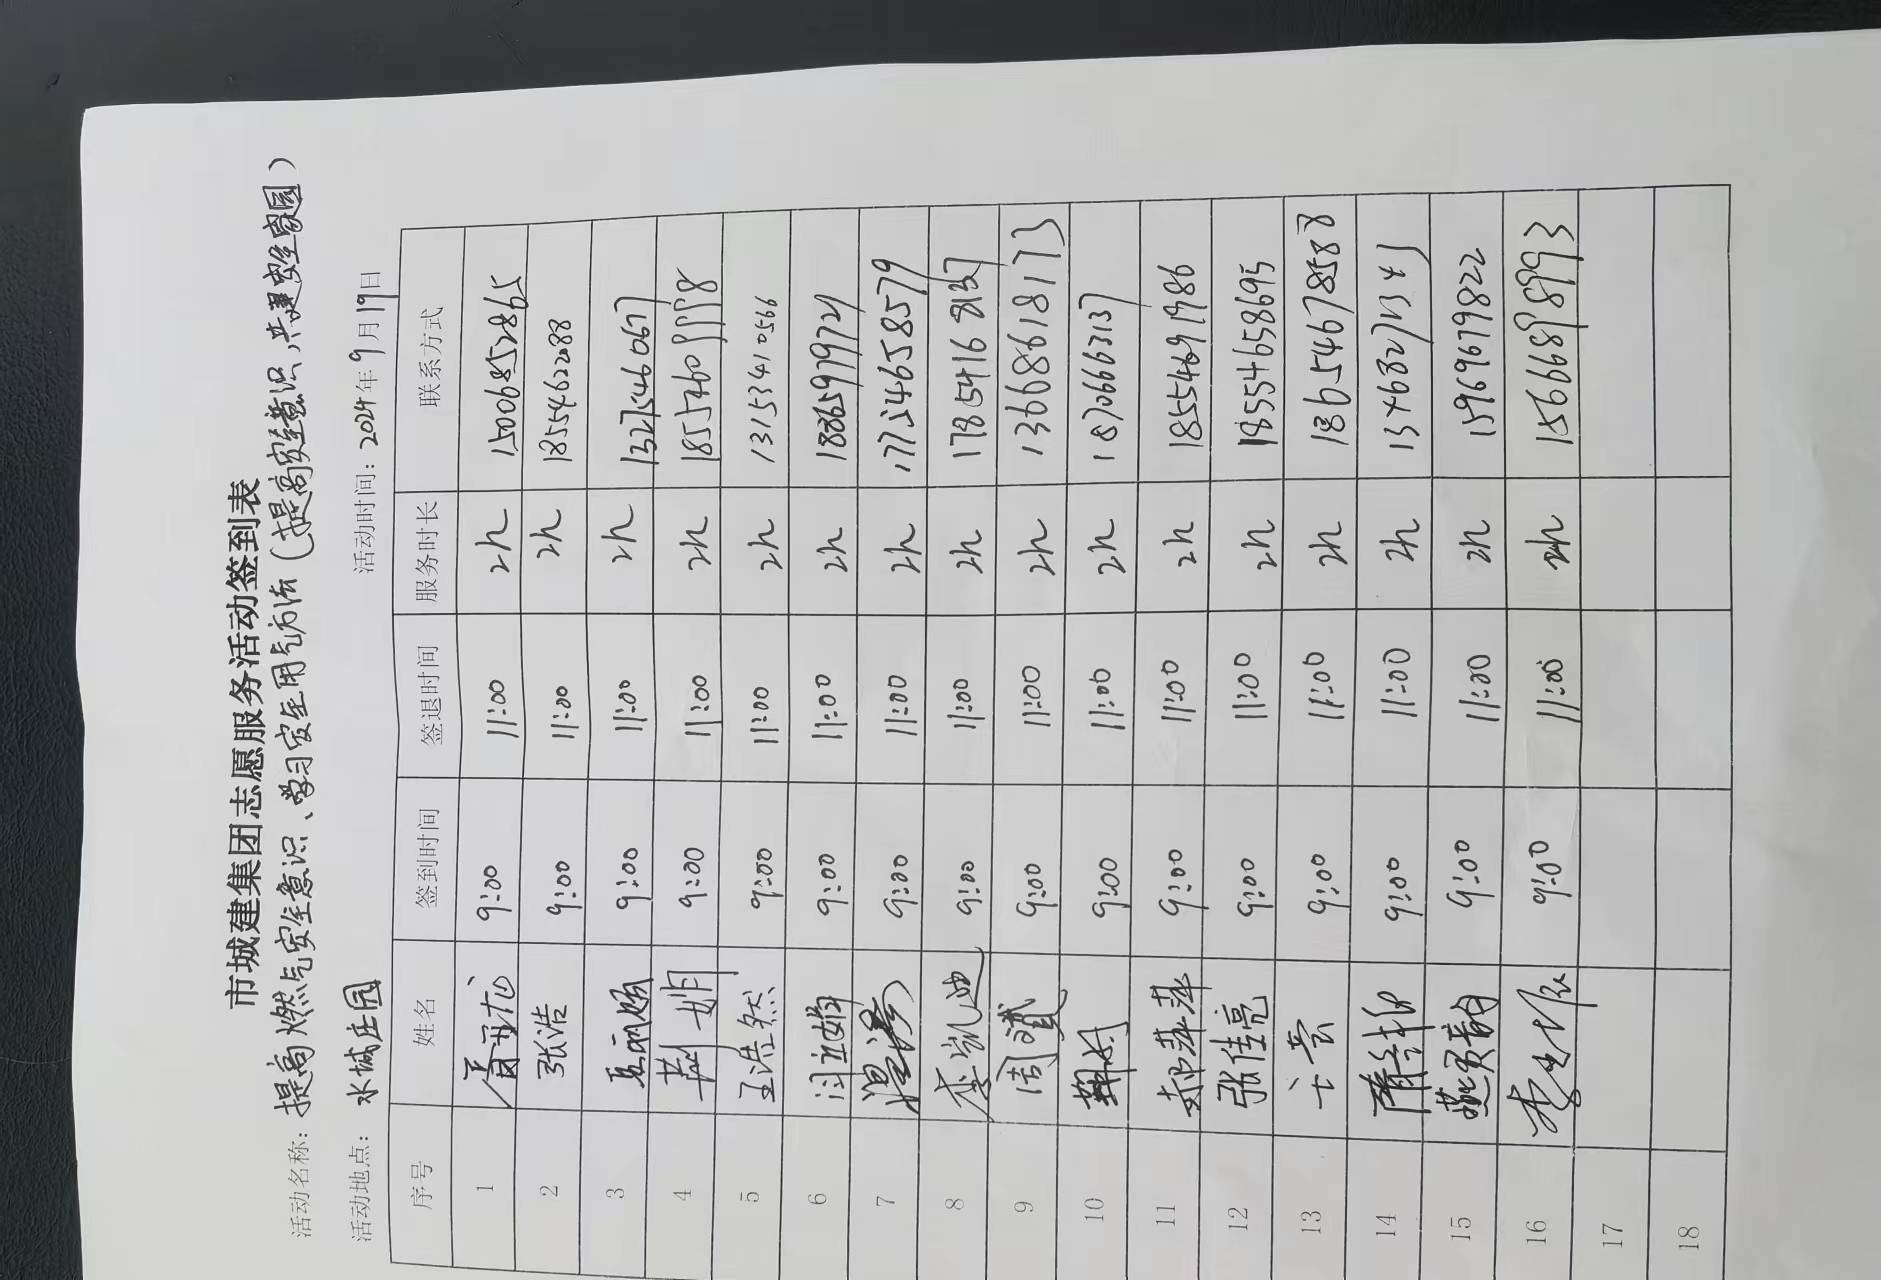 市城建集团志愿服务活动签到表
活动名称：提高燃气安全意识、学习安全用气方法（提高安全意识，共建安全家园）
活动地点：水城庄园 活动时间：2024年9月19日
序号 姓名 签到时间 签退时间 服务时长 联系方式
1 9:00 11:00 2h 15006852865
2 张浩 9:00 11:00 2h 18554622088
3 9:00 11:00 2h 13275460067
4 9:00 11:00 2h
5 王浩然 9:00 11:00 2h 13153410566
6 9:00 11:00 2h 18865979721
7 9:00 11:00 2h 17754658579
8 李凯迪 9:00 11:00 2h
9 周曦 9:00 11:00 2h 13668618173
10 9:00 11:00 2h
11 9:00 11:00 2h
12 张佳亮 9:00 11:00 2h 18554658695
13 9:00 11:00 2h 13654678588
14 9:00 11:00 2h
15 9:00 11:00 2h 15969679822
16 9:00 11:00 2h 15666898993
17
18